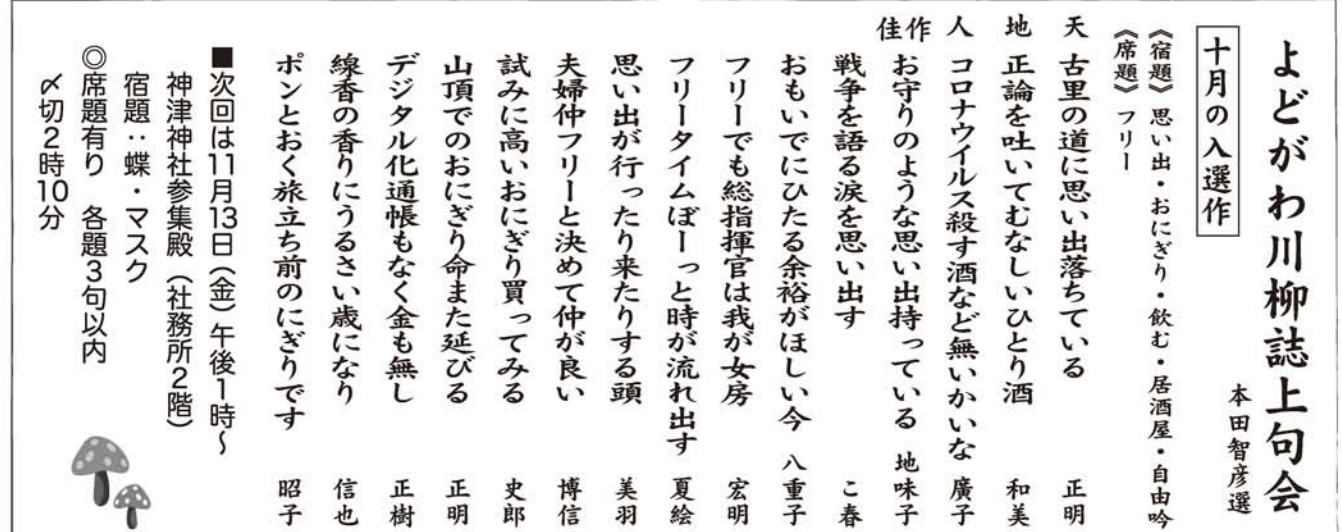 よどがわ川柳誌上句会
本田智彦選
十月の入選作
《宿題》思い出・おにぎり・飲む・居酒屋・自由吟
《席題》フリー
天 古里の道に思い出落ちている 正明
地 正論を吐いてむなしいひとり酒 和美
人 コロナウイルス殺す酒など無いかいな 廣子
佳作 お守りのような思い出持っている 地味子
戦争を語る涙を思い出す こ春
おもいでにひたる余裕がほしい今 八重子
フリーでも総指揮官は我が女房 宏明
フリータイムぼーっと時が流れ出す 夏絵
思い出が行ったり来たりする頭 美羽
夫婦仲フリーと決めて仲が良い 博信
試みに高いおにぎり買ってみる 史郎
山頂でのおにぎり命また延びる 正明
デジタル化通帳もなく金も無し 正樹
線香の香りにうるさい歳になり 信也
ポンとおく旅立ち前のにぎりです 昭子
■次回は11月13日（金）午後1時～
神津神社参集殿（社務所2階）
宿題：蝶・マスク
◎席題有り 各題3句以内
〆切2時10分